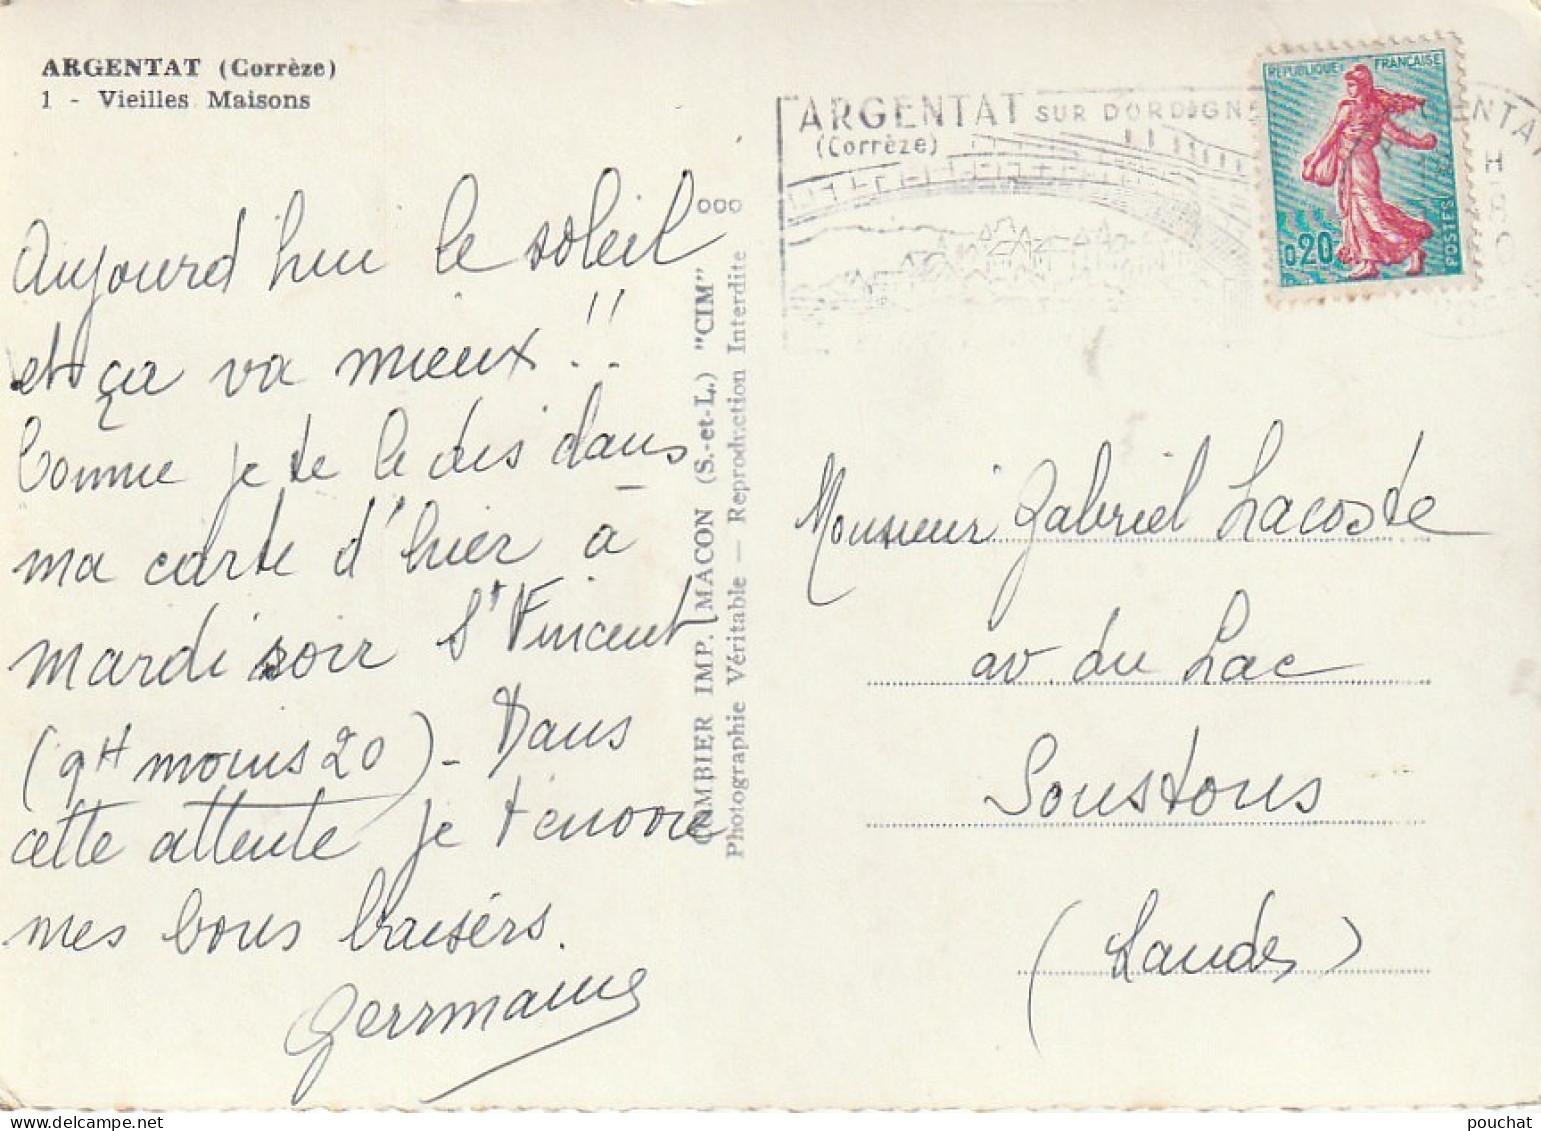 ARGENTAT (Corrèze)
1 - Vieilles Maisons
Aujourd'hui le soleil
et ça va mieux !!
Comme je te le dis dans
ma carte d'hier à
mardi soir St Vincent
(9H moins 20) - Dans
cette attente je t'envoie
mes bons baisers.
Germaine
COMBIER IMP. MACON (S.-et-L.) "CIM"
Photographie Véritable — Reproduction Interdite
ARGENTAT SUR DORDOGNE
(Corrèze)
REPUBLIQUE FRANÇAISE
0,20
POSTES
Monsieur Gabriel Lacoste
av. du Lac
Soustons
(Landes)
pouchat